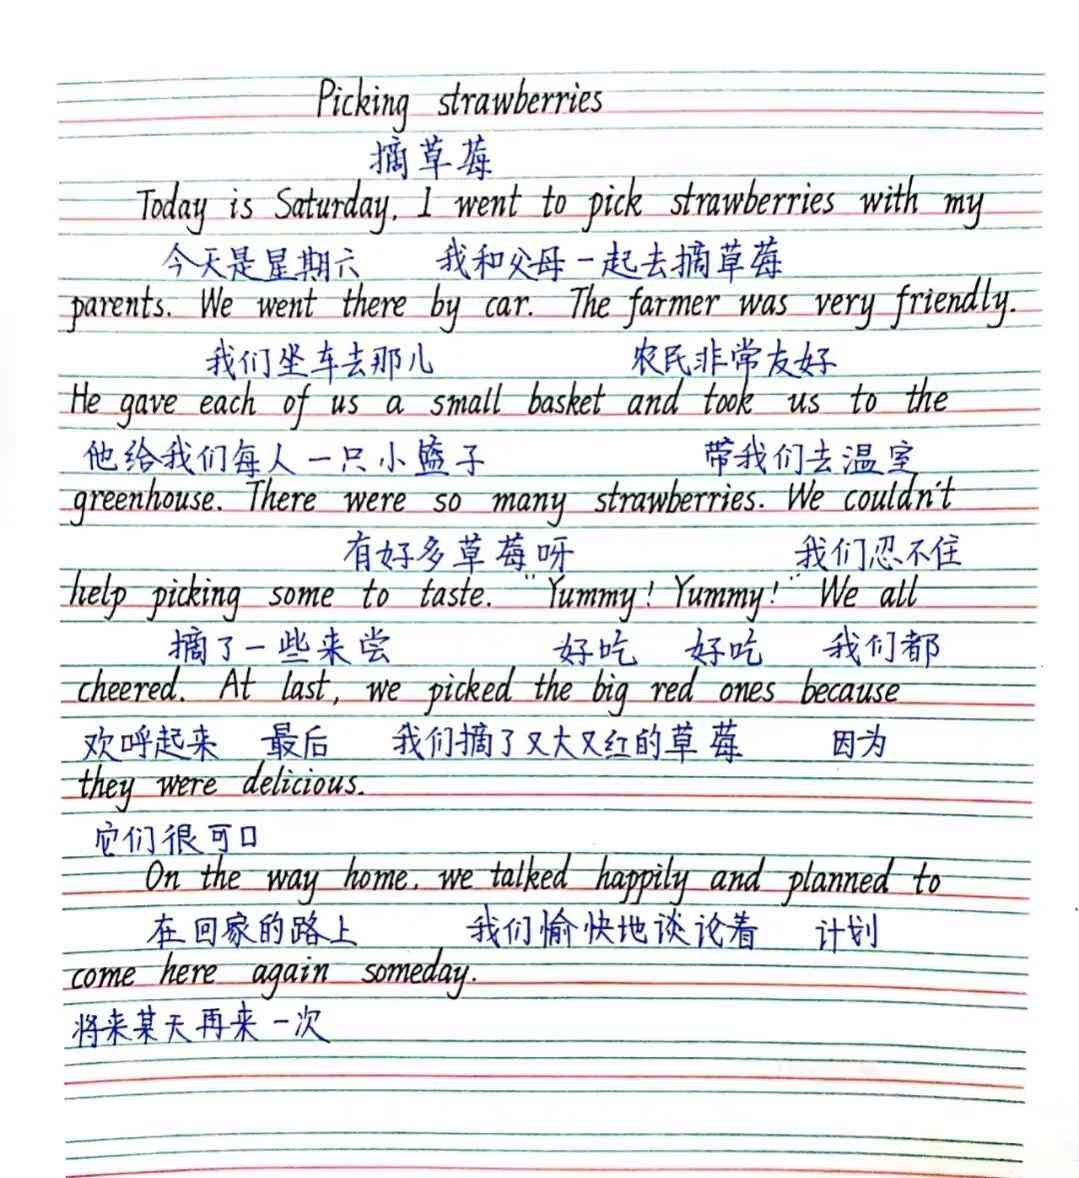 Picking strawberries
摘草莓
Today is Saturday. I went to pick strawberries with my
今天是星期六 我和父母一起去摘草莓
parents. We went there by car. The farmer was very friendly.
我们坐车去那儿 农民非常友好
He gave each of us a small basket and took us to the
他给我们每人一只小篮子 带我们去温室
greenhouse. There were so many strawberries. We couldn't
有好多草莓呀 我们忍不住
help picking some to taste. "Yummy! Yummy!" We all
摘了一些来尝 好吃 好吃 我们都
cheered. At last, we picked the big red ones because
欢呼起来 最后 我们摘了又大又红的草莓 因为
they were delicious.
它们很可口
On the way home. we talked happily and planned to
在回家的路上 我们愉快地谈论着 计划
come here again someday.
将来某天再来一次